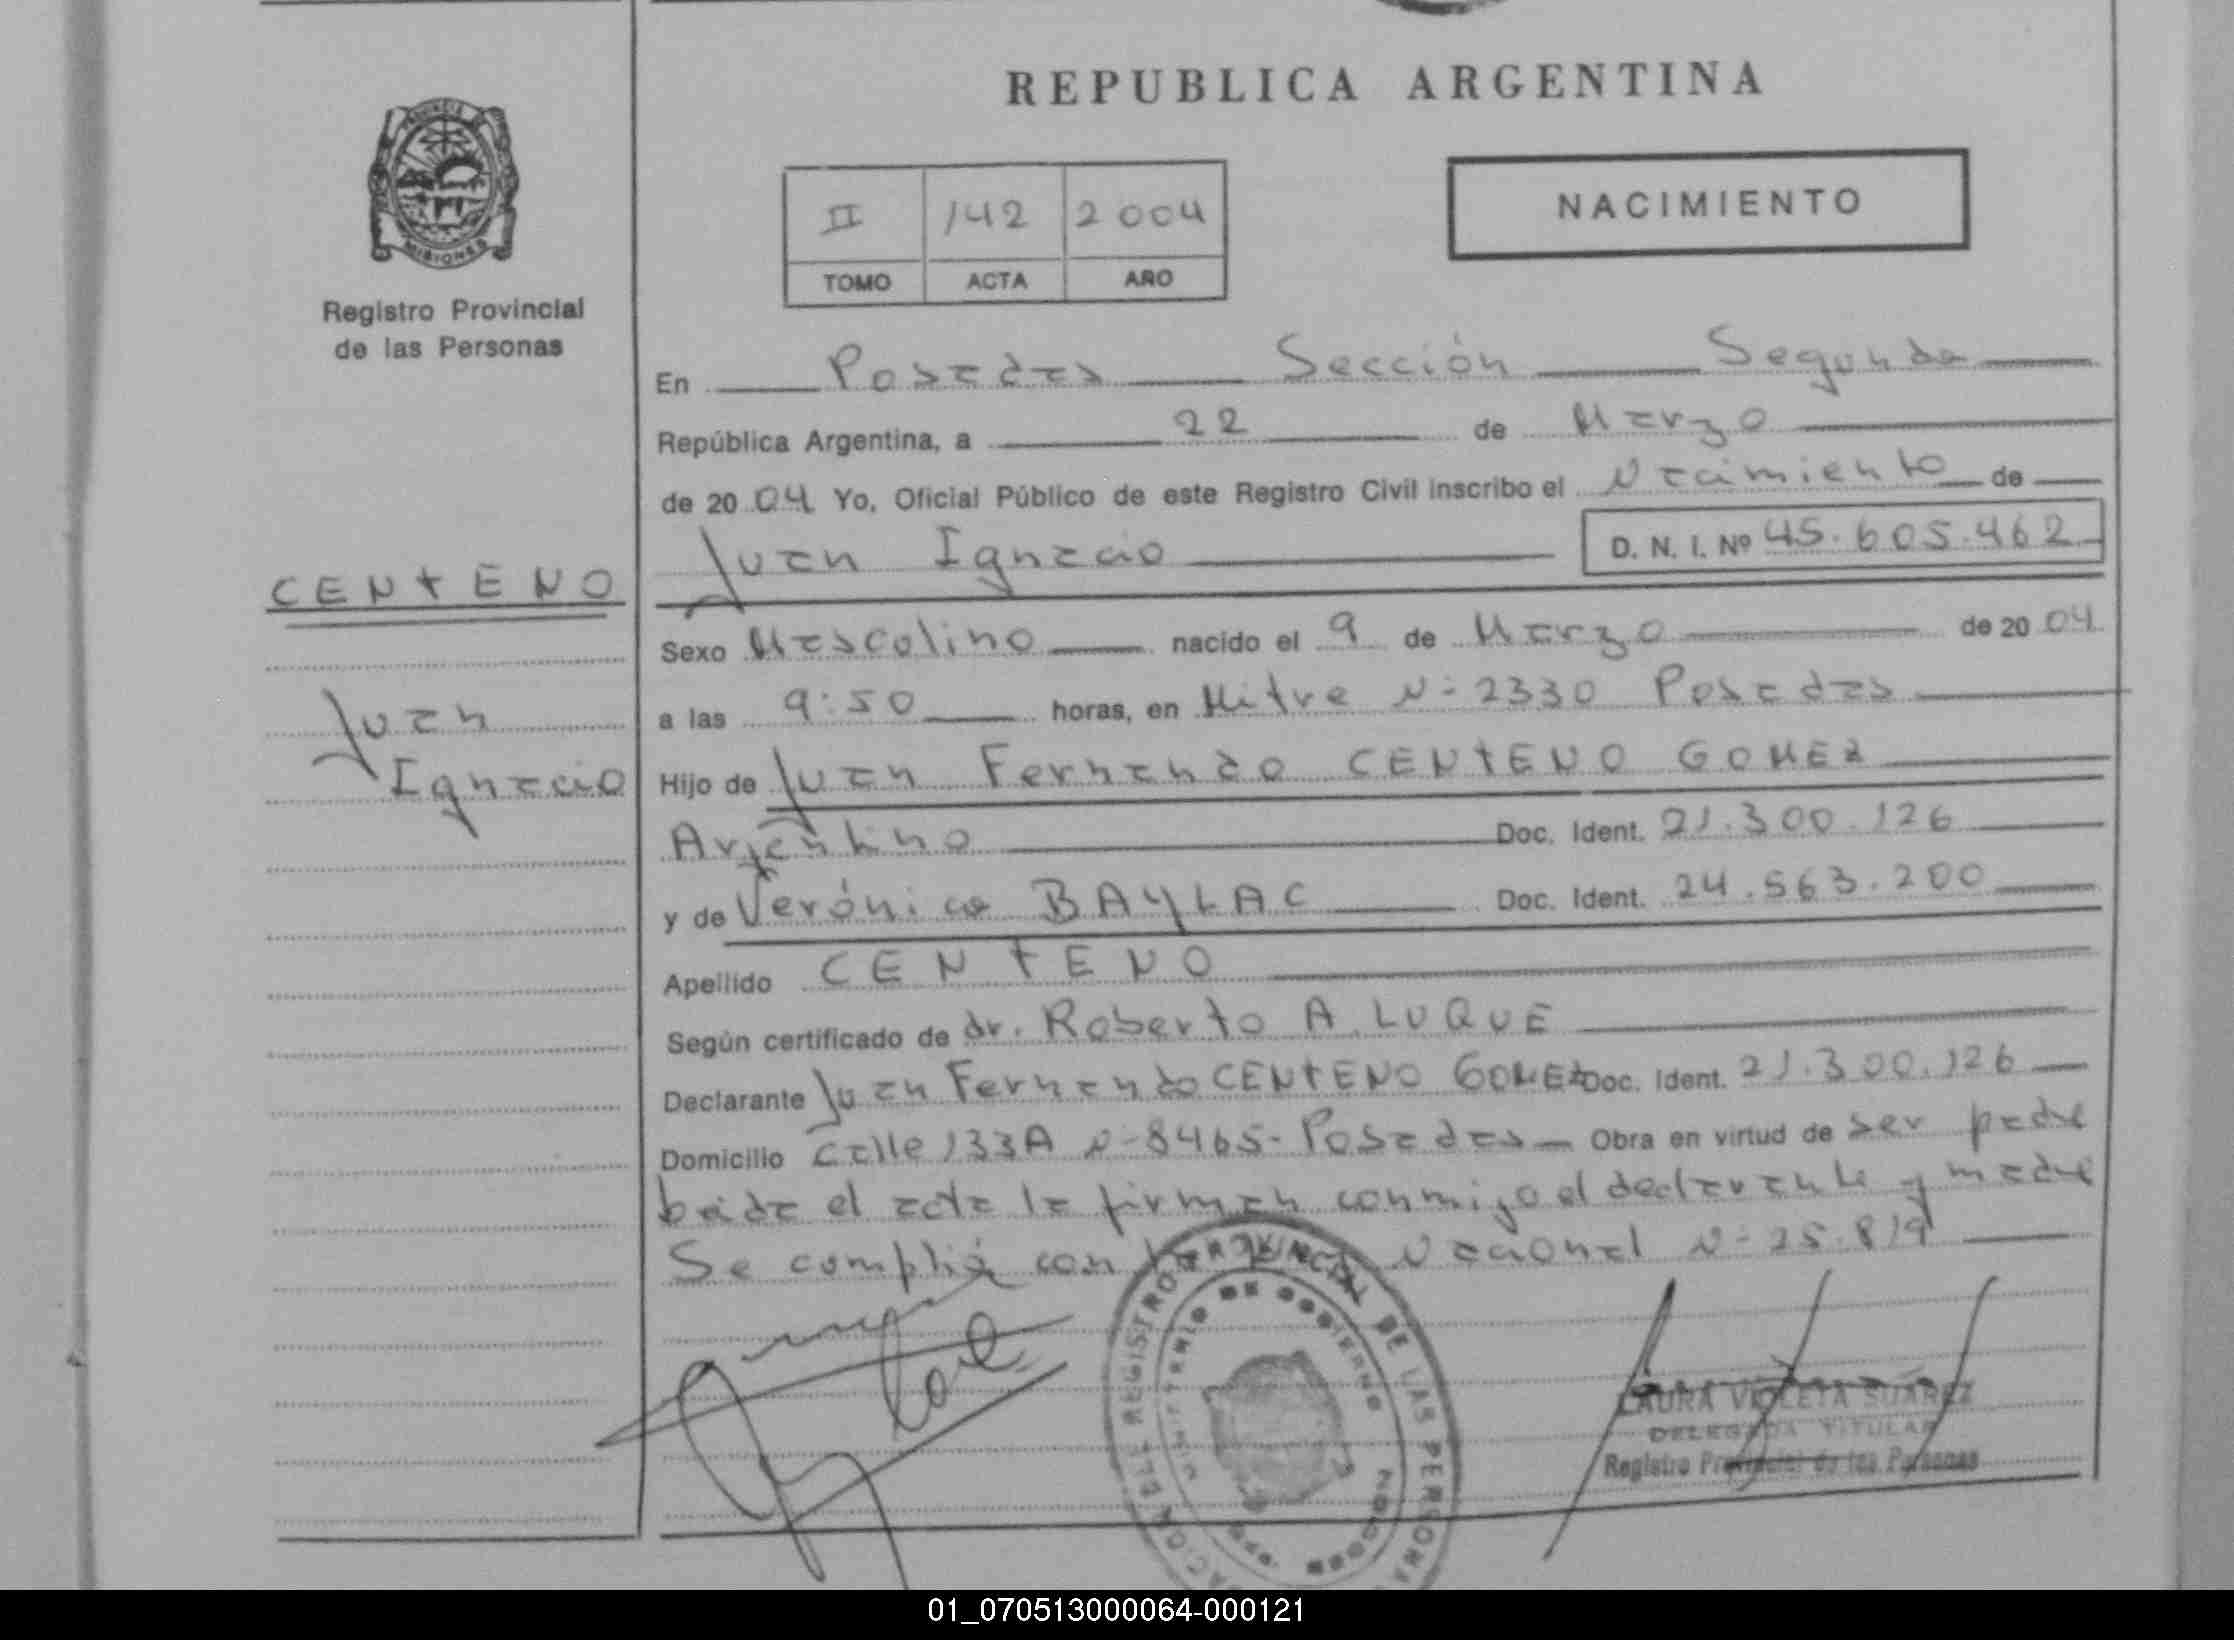 REPUBLICA ARGENTINA
PROVINCIA DE
MISIONES
Registro Provincial
de las Personas
II 142 2004
TOMO ACTA AÑO
NACIMIENTO
En Posadas Sección Segunda
República Argentina, a 22 de Marzo
de 2004 Yo, Oficial Público de este Registro Civil inscribo el Nacimiento de
Juan Ignacio D. N. I. Nº 45.605.462
CENTENO
Juan
Ignacio
Sexo Masculino nacido el 9 de Marzo de 2004
a las 9:50 horas, en Mitre N- 2330 Posadas
Hijo de Juan Fernando CENTENO GOMEZ
Argentino Doc. Ident. 21.300.126
y de Verónica BAYLAC Doc. Ident. 24.563.200
Apellido CENTENO
Según certificado de dr. Roberto A. LUQUE
Declarante Juan Fernando CENTENO GOMEZ Doc. Ident. 21.300.126
Domicilio Calle 133A N-8465- Posadas Obra en virtud de ser padre
leida el acta la firman conmigo el declarante y madre
Se cumplió con Nacional N- 25.819
REGISTRO PROVINCIAL DE LAS PERSONAS
MINISTERIO DE GOBIERNO
LAURA VIOLETA SUAREZ
DELEGADA TITULAR
Registro Provincial de las Personas
01_070513000064-000121